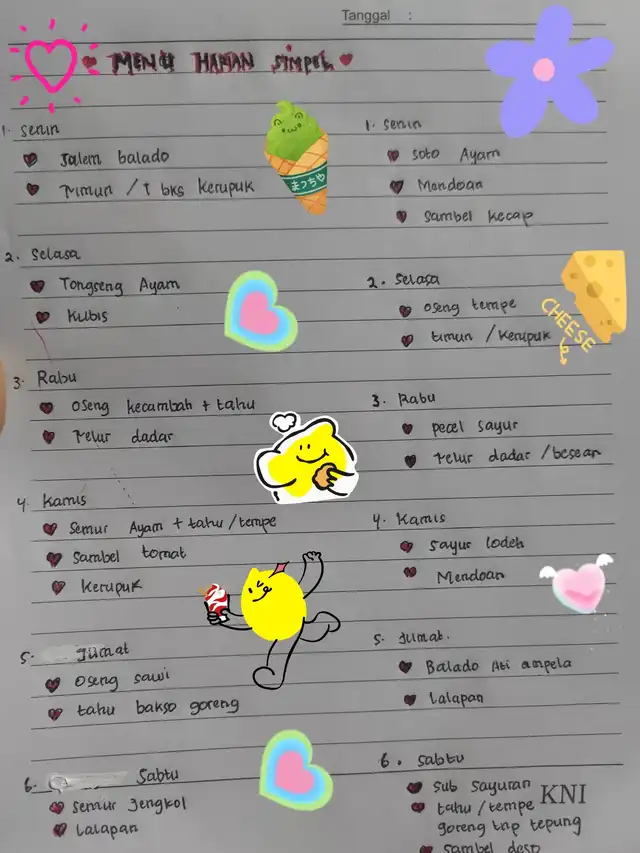 Tanggal :
MENU MAKAN SIMPEL
1. Senin
Jalem balado
Timun / 1 bks kerupuk
2. Selasa
Tongseng Ayam
Kubis
3. Rabu
Oseng kecambah + tahu
Telur dadar
4. Kamis
Semur Ayam + tahu / tempe
Sambel tomat
Kerupuk
5. Jumat
Oseng sawi
tahu bakso goreng
6. Sabtu
Semur Jengkol
Lalapan
1. Senin
Soto Ayam
Mendoan
Sambel kecap
2. Selasa
Oseng tempe
timun / kerupuk
3. Rabu
pecel sayur
Telur dadar / besean
4. Kamis
Sayur lodeh
Mendoan
5. Jumat.
Balado Ati ampela
Lalapan
6. Sabtu
Sub Sayuran
tahu / tempe
goreng tnp tepung
sambel
まっちゃ
CHEESE
KNI